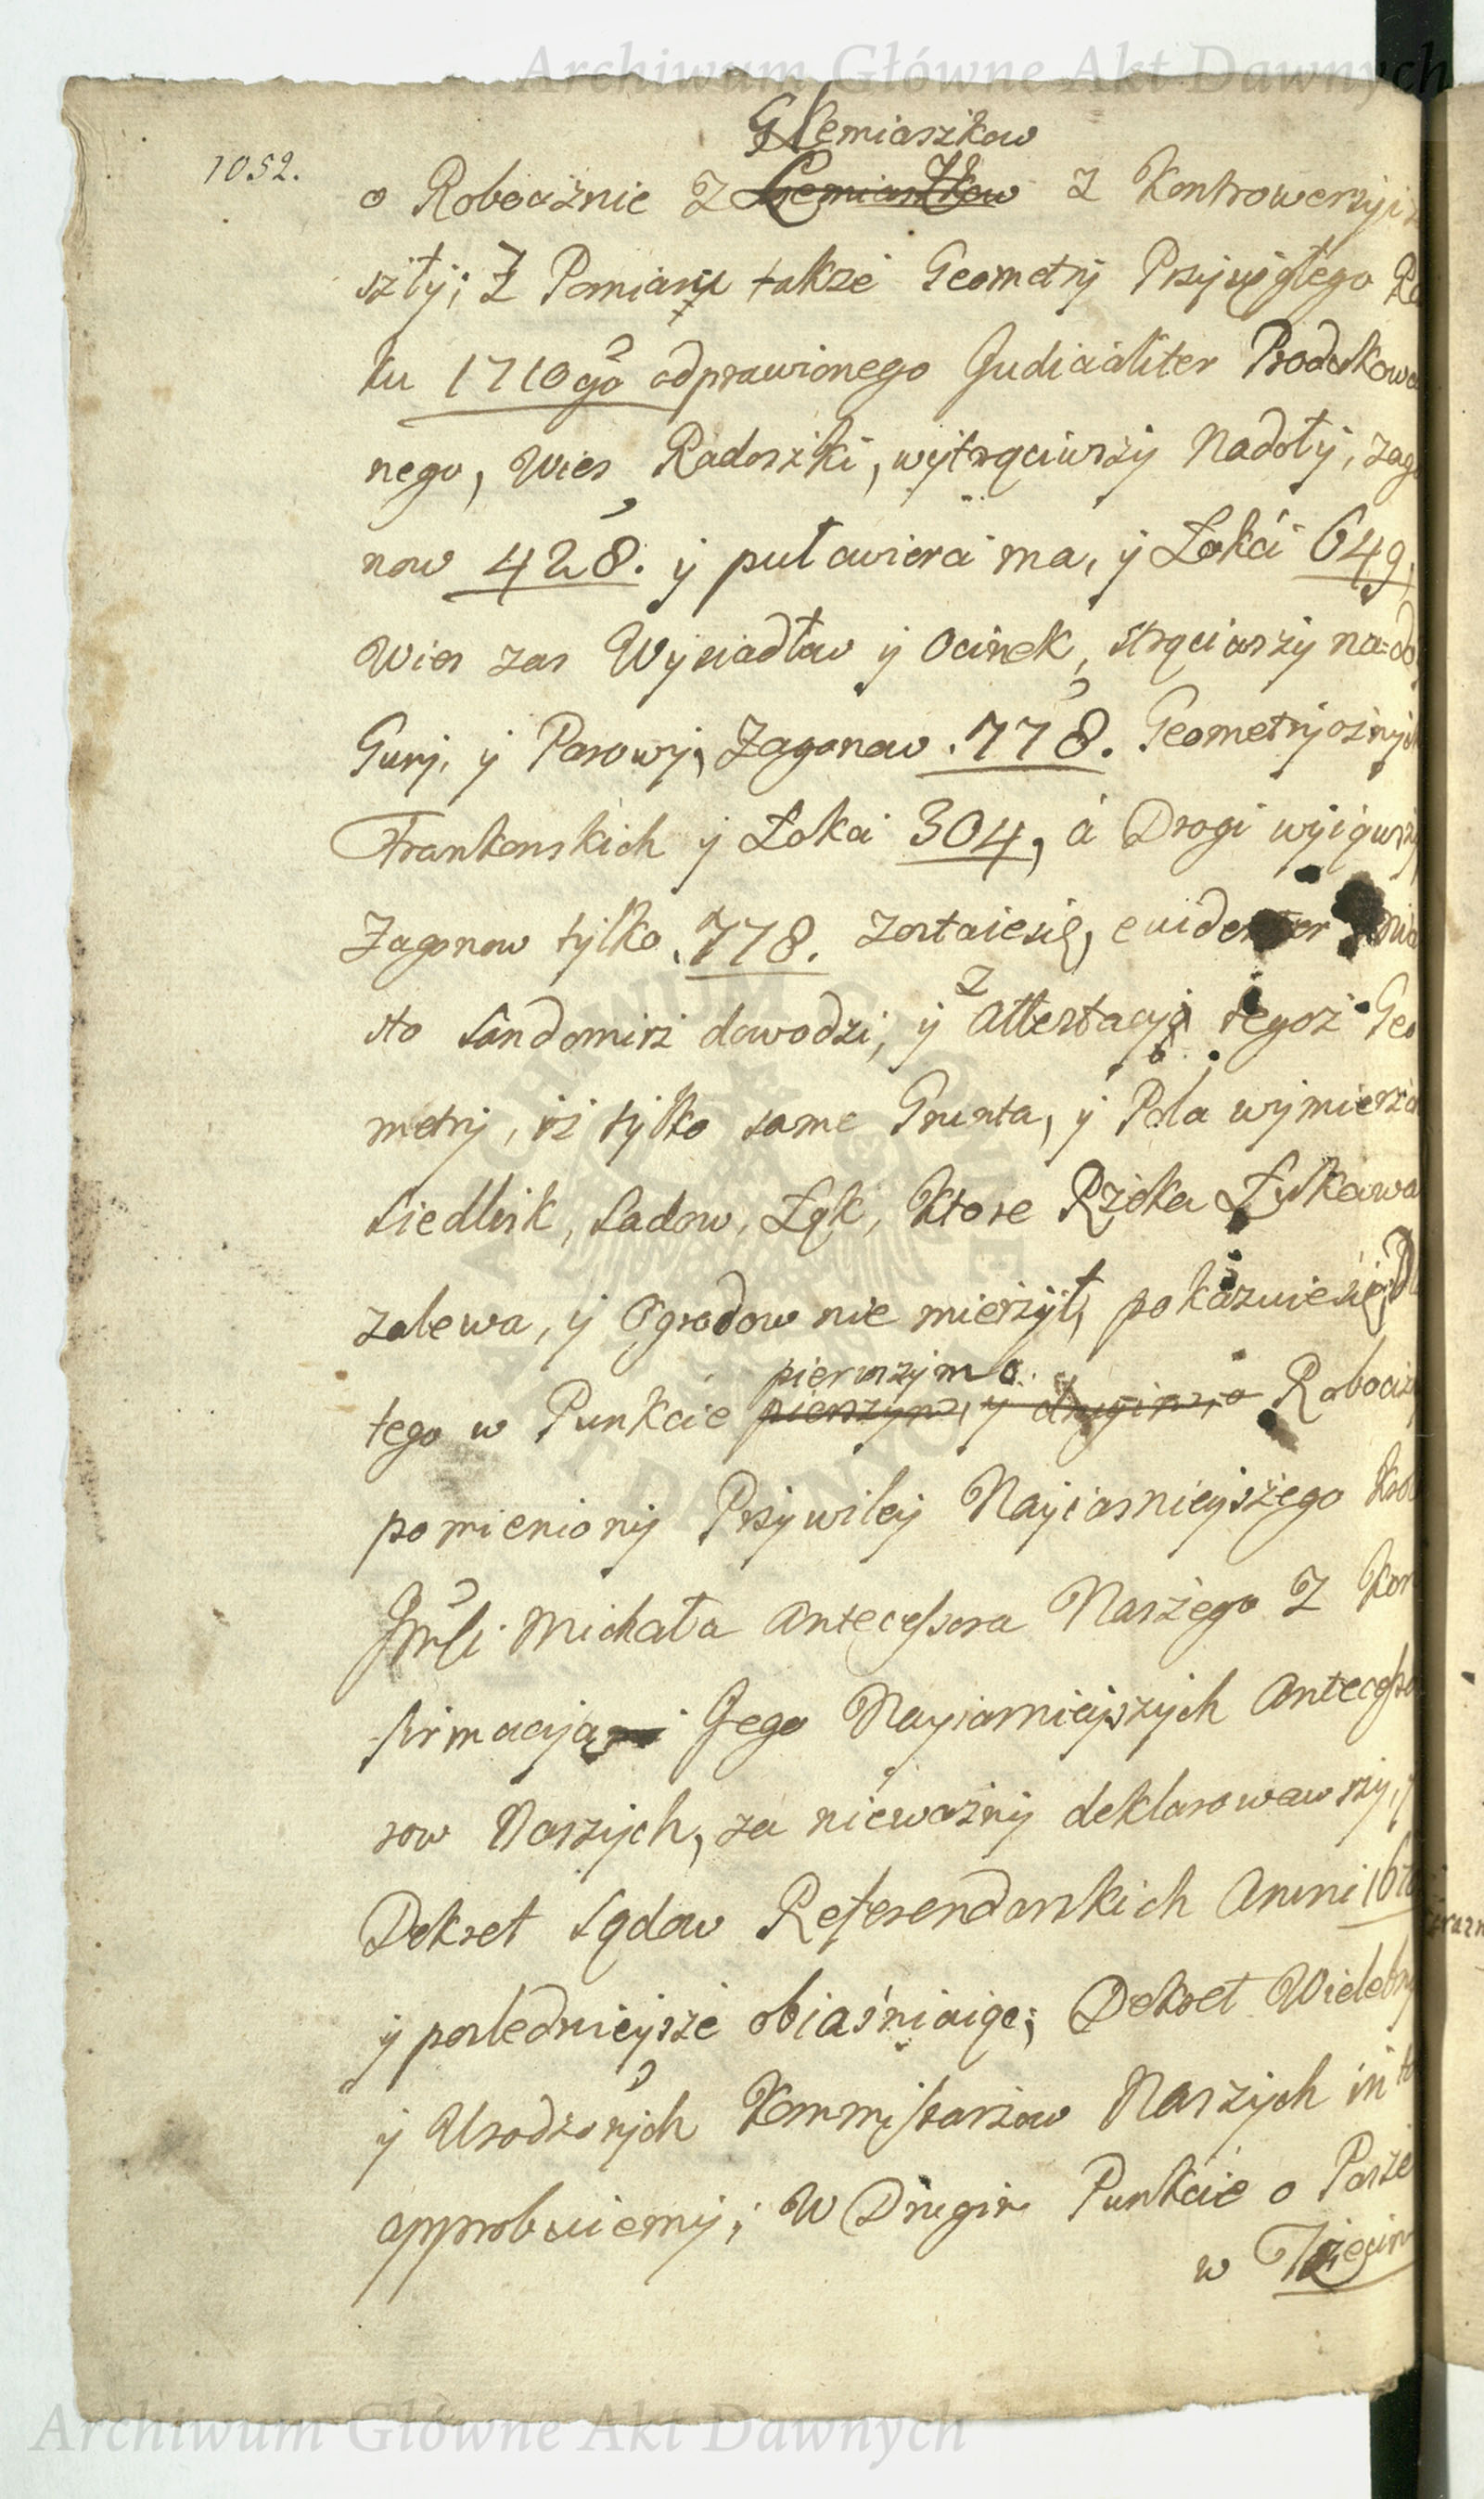 Archiwum Główne Akt Dawnych
1052.
Glemiaszkow
o Robociznie Z Lemiaszkow z Kontrowersyi
szły; Z Pomiaru także Geometry Przysięgłego Ro
ku 1710go odprawionego Judicialiter Produkowa
nego, Wies Radoszki, wytrąciwszy Nadoły, zago
now 428. y puł awiera ma, y Łokci 649,
Wies zas Wysiadłow y Ocinek, strąciwszy na=do
Gury, y Parowy, Zagonow .778. Geometrycznych
Frankonskich y Łokci 304, á Drogi wyiąwszy
Zagonow tylko .778. zostaie się, evidenter Mia
sto Sandomirz dowodzi, y z Attestacyi tegoz Geo
metry, iż tylko same Grunta, y Pola wymierza
Siedlisk, Sadow, Łąk, Ktore Rzeka Łukawa
zalewa, y Ogrodow nie mierzył, pokazuie się, D
pierwszym o
tego w Punkcie pierszym, y drugim, o Robociz
pomieniony Przywiley Nayiasnieyszego Krol
Jmści Michała Antecessora Naszego Z Kon
firmacyą Jego Nayiasnieyszych Antecesso
row Naszych, za nieważny deklarowawszy, y
Dekret Sądow Referendarskich Anni 167
y poslednieysze obiaśniaiąc; Dekret Wielebny
y Urodzonych Kommissarzow Naszych in to
approbuiemy; W Drugim Punkcie o Pasze
w Trzecim
Archiwum Główne Akt Dawnych